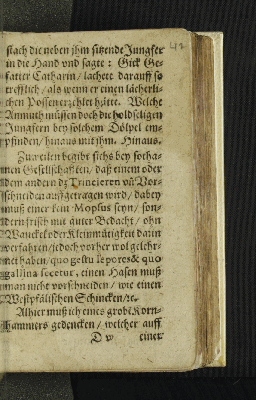 stach die neben jhm sitzende Jungfer
in die Hand vnd sagte: Gick Ge-
fatter Catharin/ lachete darauff so
trefflich/ als wenn er einen lächerli-
chen Possen erzehlet hätte. Welche
Anmuth müssen doch die holdseligen
Jungfern bey solchem Dölpel em-
pfinden/ hinaus mit jhm. Hinaus.
Zuweilen begibt sichs bey sotha-
nen Gesellschafften/ daß einem oder
dem andern dz Trincieren vñ Vor-
schneiden auffgetragen wird/ dabey
muß einer kein Mopsus seyn/ son-
dern frisch mit guter Bedacht/ ohn
Wanckel oder Kleinmütigkeit darin
verfahren/ jedoch vorher wol gelehr-
net haben/ quo gestu lepores & quo
gallina secetur, einen Hasen muß
man nicht vorschneiden/ wie einen
Westpfälischen Schincken/ ꝛc.
Alhier muß ich eines grobē Korn-
hammers gedencken/ welcher auff
D v einer